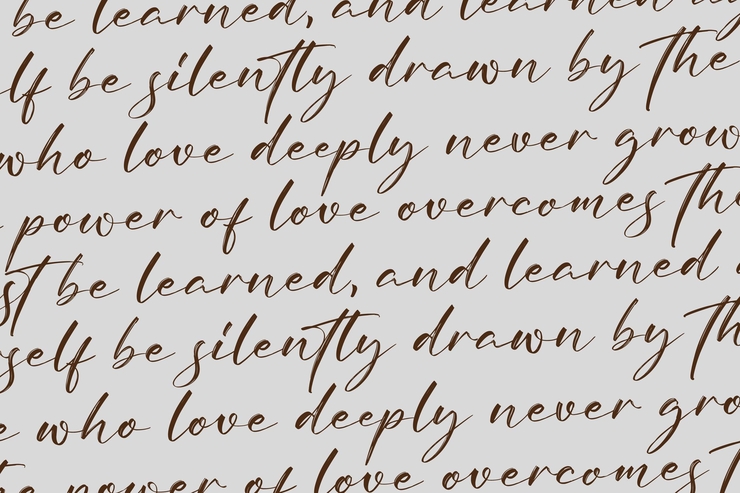 be learned, and learned
self be silently drawn by the
who love deeply never grow
power of love overcomes the
be learned, and learned
self be silently drawn by th
who love deeply never gro
power of love overcomes